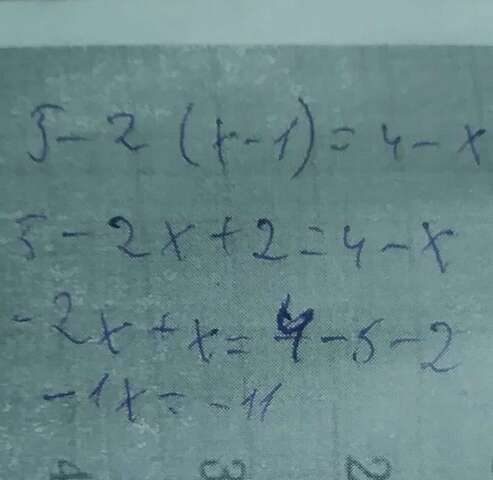 5-2(x-1)=4-x
5-2x+2=4-x
-2x+x=4-5-2
-1x=-11
4 3 2